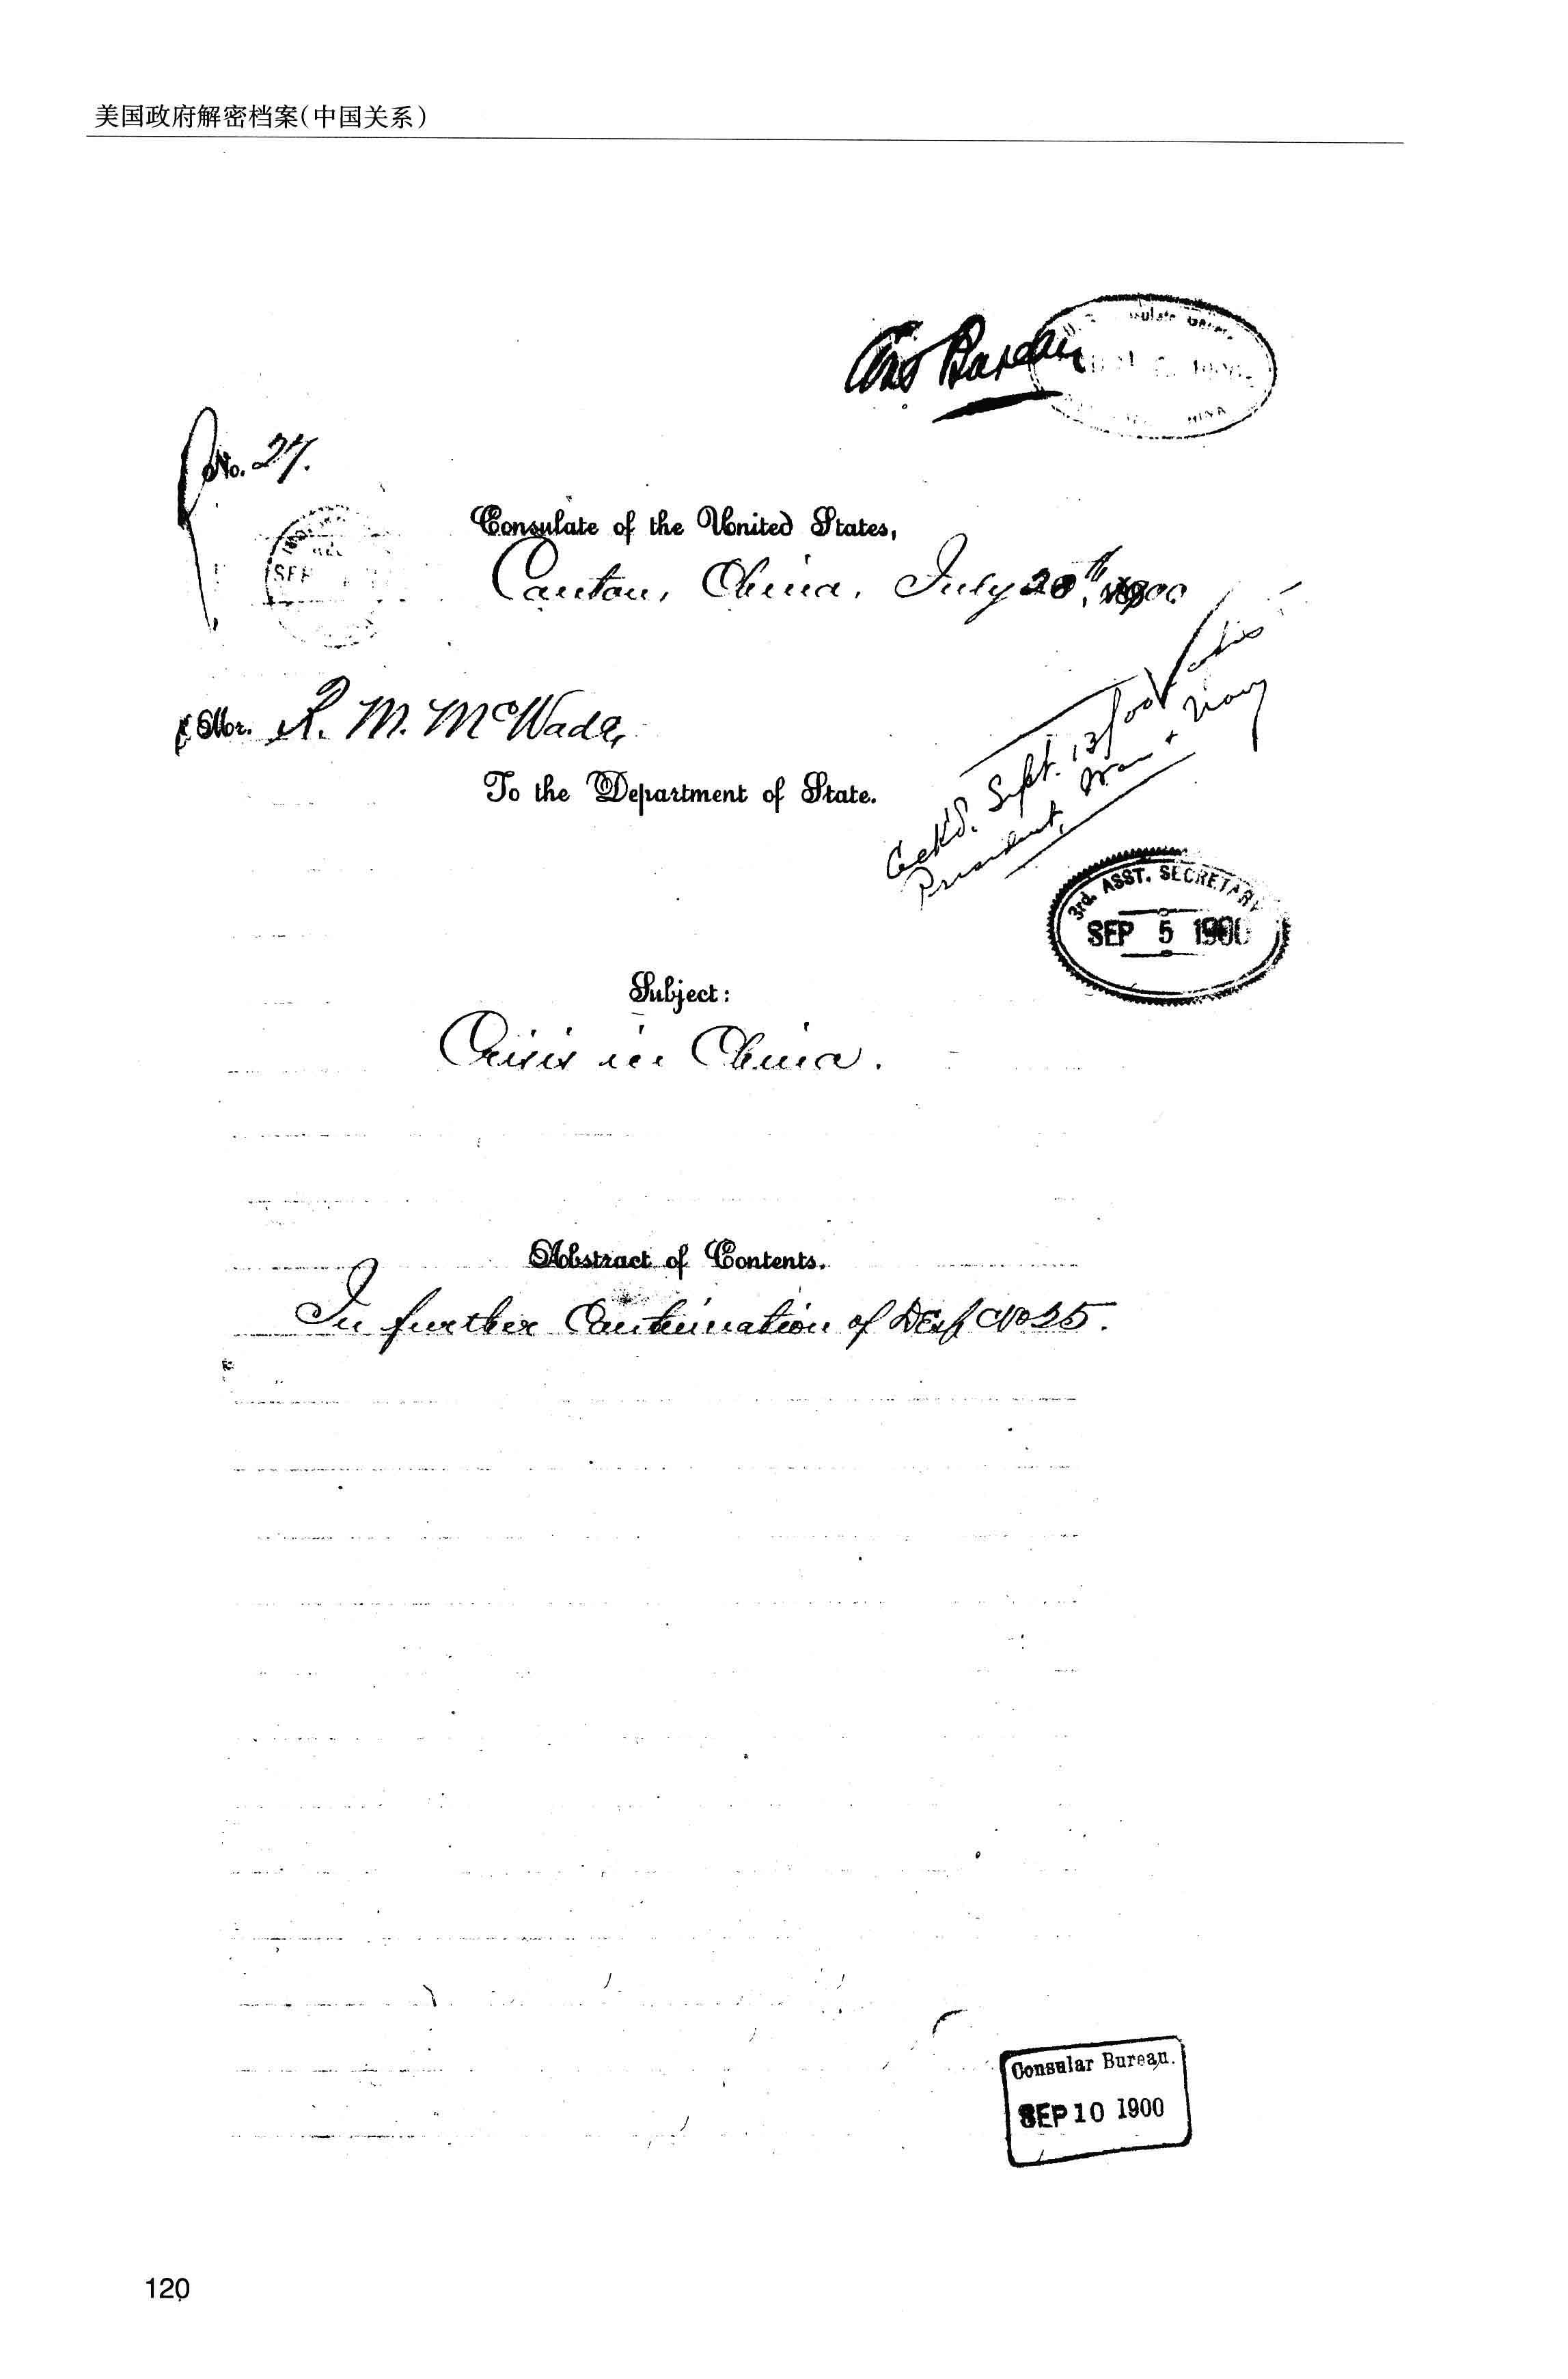 美国政府解密档案(中国关系)
Bureau
No. 27.
Consulate of the United States,
Canton, China, July 20th, 1900
SEP
Mr. R. M. McWade,
To the Department of State.
Ack'd. Sept. 13/00
President, War & Navy
3rd. ASST. SECRETARY
SEP 5 1900
Subject:
Crisis in China.
Abstract of Contents.
In further Continuation of Desp No 25.
Consular Bureau.
SEP 10 1900
120